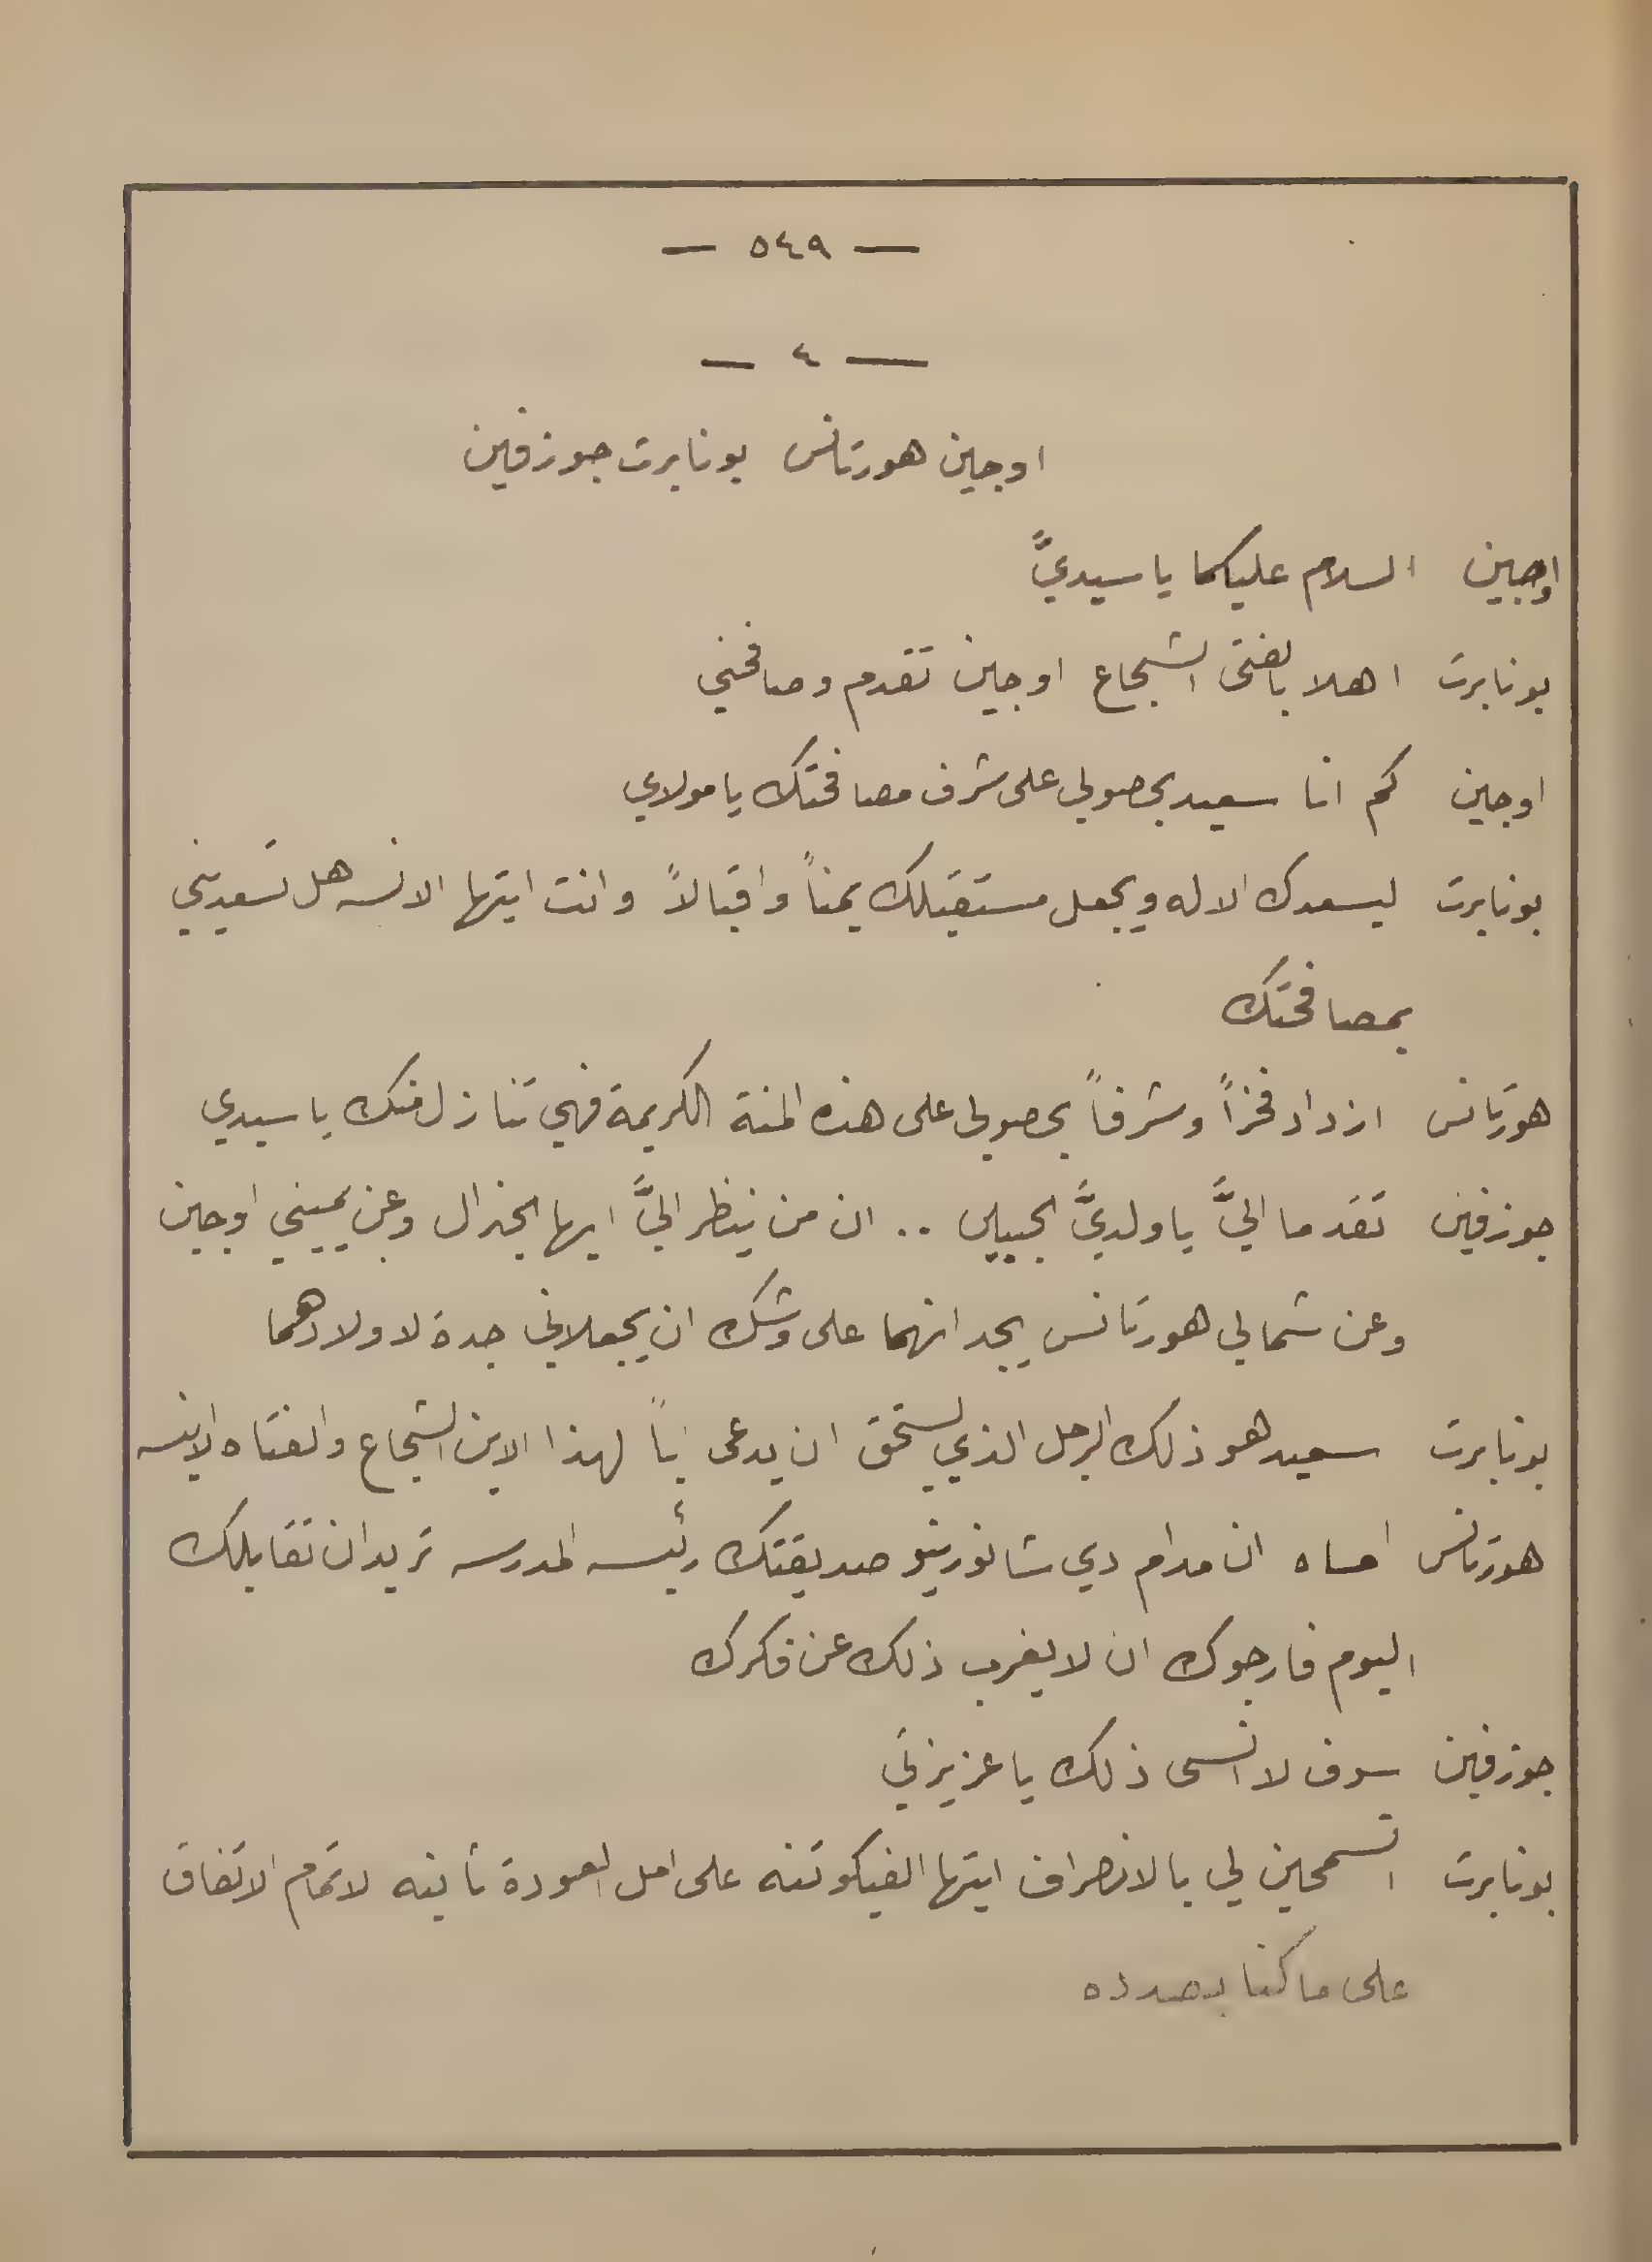 — ٥٤٩ —
— ٤ —
اوجين هورتانس بونابرت جوزفين
اوجين السلام عليكما يا سيديَّ
بونابرت اهلا بالفتى الشجاع اوجين تقدم وصافحني
اوجين كم انا سعيد بحصولي على شرف مصافحتك يا مولاي
بونابرت ليسعدك الاله ويجعل مستقبلك يمناً واقبالاً وانت ايتها الانسه هل تسعديني
بمصافحتك
هورتانس ازداد فخراً وشرفاً بحصولي على هذه المنة الكريمة فهي تنازل منك يا سيدي
جوزفين تقدما اليَّ يا ولديَّ الحبيبين .. ان من ينظر اليَّ ايها الجنرال وعن يميني اوجين
وعن شمالي هورتانس يجد انهما على وشك ان يجعلاني جدة لاولادهما
بونابرت سعيد هو ذلك الرجل الذي يستحق ان يدعى اباً لهذا الابن الشجاع والفتاه الانسه
هورتانس اماه ان مدام دي شانورينو صديقتك رئيسه المدرسه تريد ان تقابلك
اليوم فارجوك ان لا يغرب ذلك عن فكرك
جوزفين سوف لا انسى ذلك يا عزيزتي
بونابرت اتسمحين لي بالانصراف ايتها الفيكوتنه على امل العودة ثانيه لاتمام الاتفاق
على ما كنا بصدده